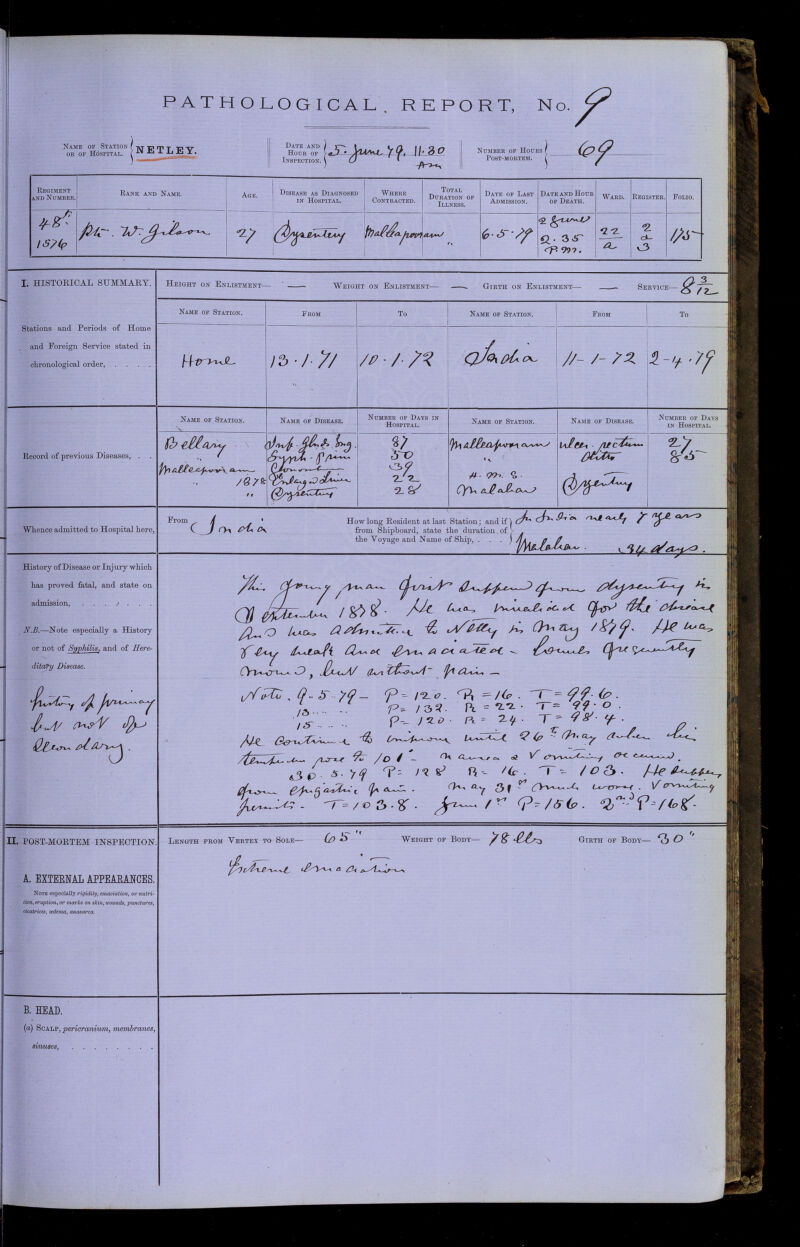 PATHOLOGICAL REPORT, No. 9
NAME OF STATION OR OF HOSPITAL. NETLEY.
DATE AND HOUR OF INSPECTION. 5. June 79. 11.30 Am
NUMBER OF HOURS POST-MORTEM. 69
REGIMENT AND NUMBER. RANK AND NAME. AGE. DISEASE AS DIAGNOSED IN HOSPITAL. WHERE CONTRACTED. TOTAL DURATION OF ILLNESS. DATE OF LAST ADMISSION. DATE AND HOUR OF DEATH. WARD. REGISTER. FOLIO.
48th 1576 Pte. W. Gilson 27 Dysentery Malleapooram " 6.5.79 2 June 2.35 P.M. 22 a 2 a 3 175
I. HISTORICAL SUMMARY.
HEIGHT ON ENLISTMENT— — WEIGHT ON ENLISTMENT— — GIRTH ON ENLISTMENT— — SERVICE— 8 3/12
Stations and Periods of Home and Foreign Service stated in chronological order, . . . .
NAME OF STATION. FROM TO NAME OF STATION. FROM TO
Home 13.1.71 10.1.72 India 11-1-72 2-4-79
Record of previous Diseases, . .
NAME OF STATION. NAME OF DISEASE. NUMBER OF DAYS IN HOSPITAL. NAME OF STATION. NAME OF DISEASE. NUMBER OF DAYS IN HOSPITAL.
Bellary Inf. Glnds Ing. 87 Malleapooram ulcer. rectum 27
" Syph. prim 50 " Ditto 85
Malleapooram 39
" 1878 Enlarged 22 H.M.S. Malabar Dysentery
" Dysentery 28
Whence admitted to Hospital here,
From India
How long Resident at last Station; and if from Shipboard, state the duration of the Voyage and Name of Ship, . . .
In India nearly 7 years
Malabar. 34 days.
History of Disease or Injury which has proved fatal, and state on admission, . . . . . . .
N.B.—Note especially a History or not of Syphilis, and of Hereditary Disease.
History of primary
but not of
Secondary.
This young man first suffered from dysentery in
September 1878. He was invalided for the disease
and was admitted to Netley in May 1879. He was
very weak and emaciated – bowels frequently
moved, but without pain —
Note. 9.5.79 — P = 120. R = 16. T = 99.6.
13 . . . . P = 132. R = 22. T = 99.0.
15 . . . . P = 120. R = 24. T = 98.4.
He continued to improve until 26th May when his
temperature rose to 101° – nausea & vomiting occurred.
30.5.79 P = 128 R = 16. T = 103. He suffers
from epigastric pain. May 31st much worse. Vomiting
persists. T = 103.8. June 1st P = 156. 2nd P = 168.
II. POST-MORTEM INSPECTION.
LENGTH FROM VERTEX TO SOLE— 65" WEIGHT OF BODY— 78 lbs GIRTH OF BODY— 30"
A. EXTERNAL APPEARANCES.
NOTE especially rigidity, emaciation, or nutrition, eruption, or marks on skin, wounds, punctures, cicatrices, œdema, anasarca.
Extreme emaciation
B. HEAD.
(a) SCALP, pericranium, membranes, sinuses, . . . . . . . .